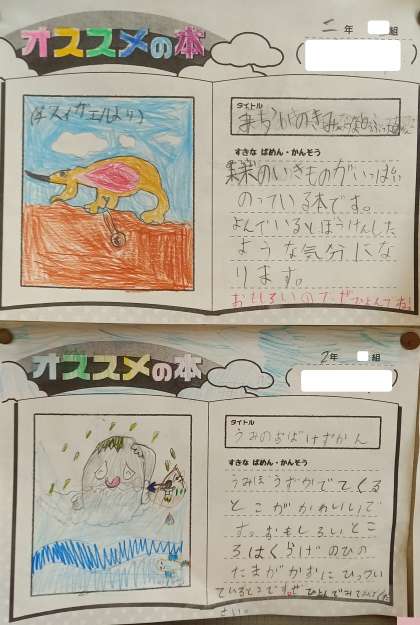 オススメの本
二年 組
タイトル
すきな ばめん・かんそう
(キスイガエルより)
のいきものがいっぱい
のっている本です。
よんでいるとぼうけんした
ような気分にな
ります。
おもしろいのでぜひよんでね。
オススメの本
2年 組
タイトル
うみのおばけずかん
すきな ばめん・かんそう
うみぼうずがでてくる
とこがかわいいで
す。おもしろいとこ
ろはくらげのひの
たまがかおにひっつい
ているところです。ぜひよんでみてください
さい。